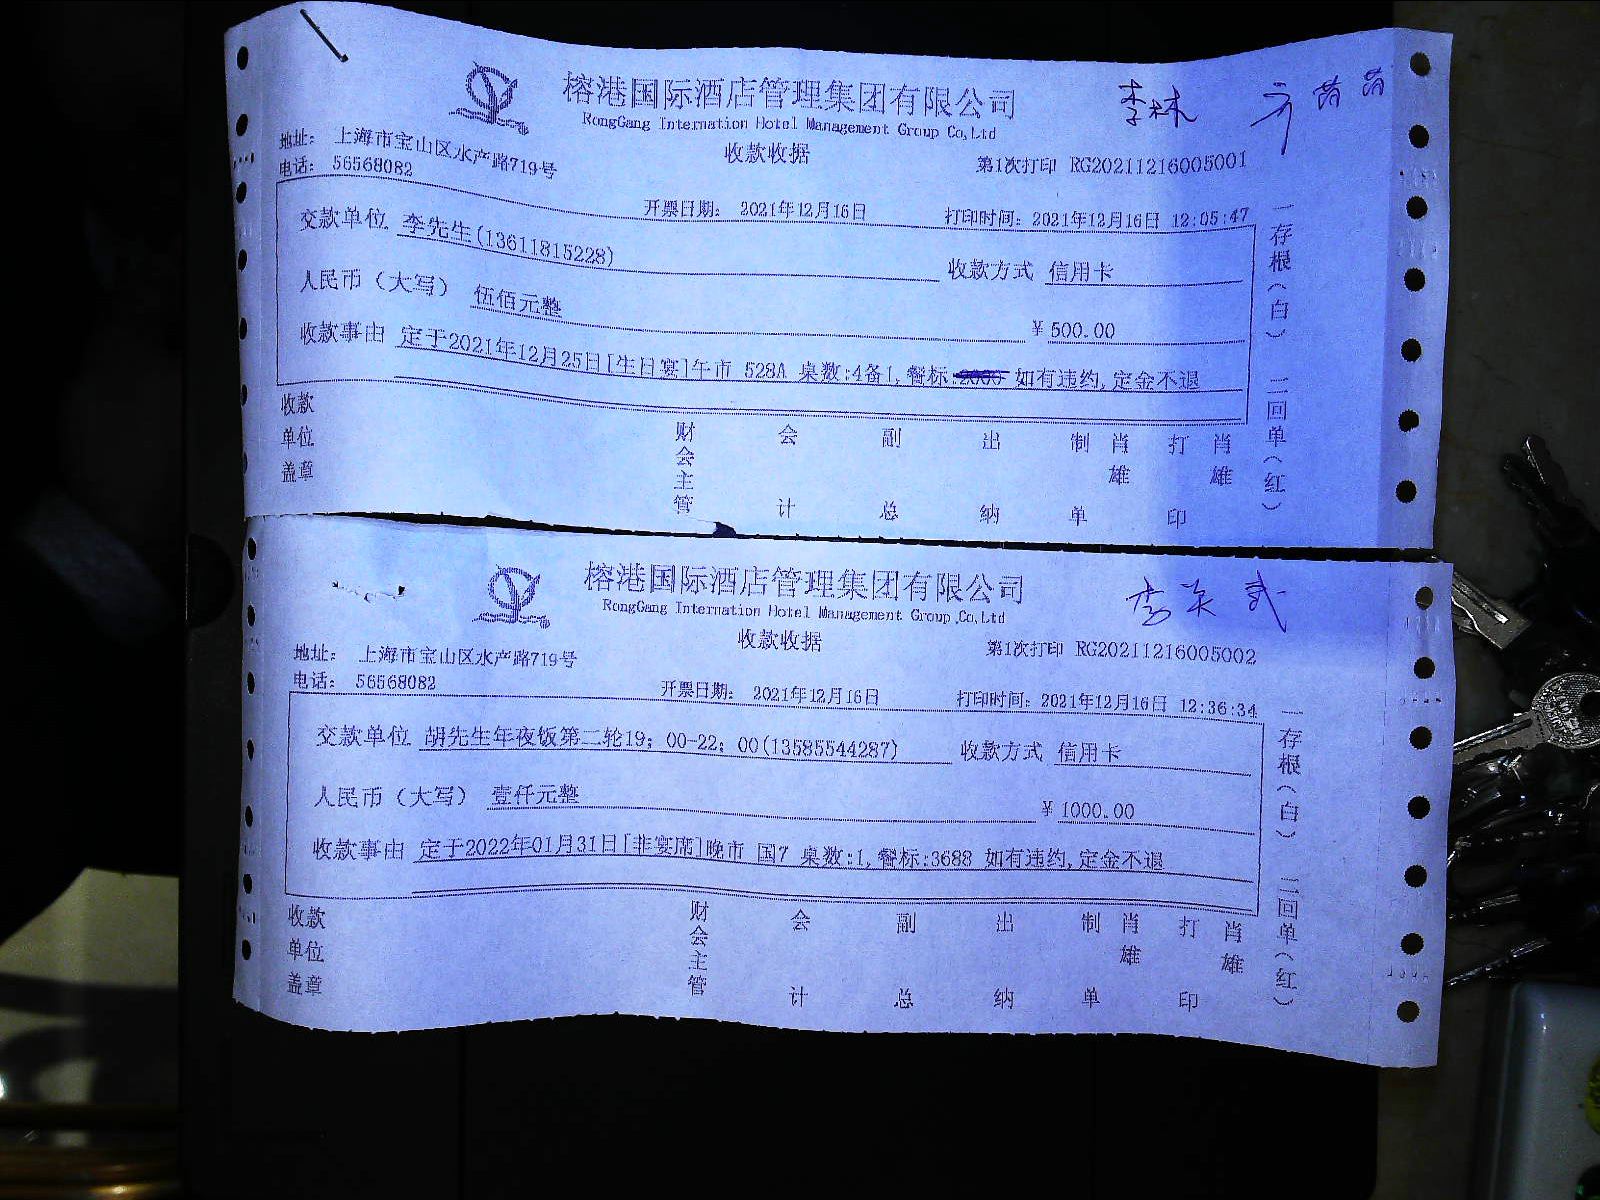 榕港国际酒店管理集团有限公司
李林
RongGang Internation Hotel Management Group Co,Ltd
收款收据
第1次打印 RG20211216005001
地址： 上海市宝山区水产路719号
电话： 56568082
开票日期： 2021年12月16日 打印时间：2021年12月16日 12:05:47
交款单位 李先生(13611815228) 收款方式 信用卡
人民币（大写） 伍佰元整 ￥500.00
收款事由 定于2021年12月25日[生日宴]午市 528A 桌数:4备1,餐标: 如有违约,定金不退
一存根（白） 二回单（红）
收款单位盖章 财会主管 会计 副总 出纳 制单 肖雄 打印 肖雄
榕港国际酒店管理集团有限公司
RongGang Internation Hotel Management Group Co,Ltd
收款收据
第1次打印 RG20211216005002
地址： 上海市宝山区水产路719号
电话： 56568082
开票日期： 2021年12月16日 打印时间：2021年12月16日 12:36:34
交款单位 胡先生年夜饭第二轮19；00-22；00(13585544287) 收款方式 信用卡
人民币（大写） 壹仟元整 ￥1000.00
收款事由 定于2022年01月31日[非宴席]晚市 国7 桌数:1,餐标:3688 如有违约,定金不退
一存根（白） 二回单（红）
收款单位盖章 财会主管 会计 副总 出纳 制单 肖雄 打印 肖雄